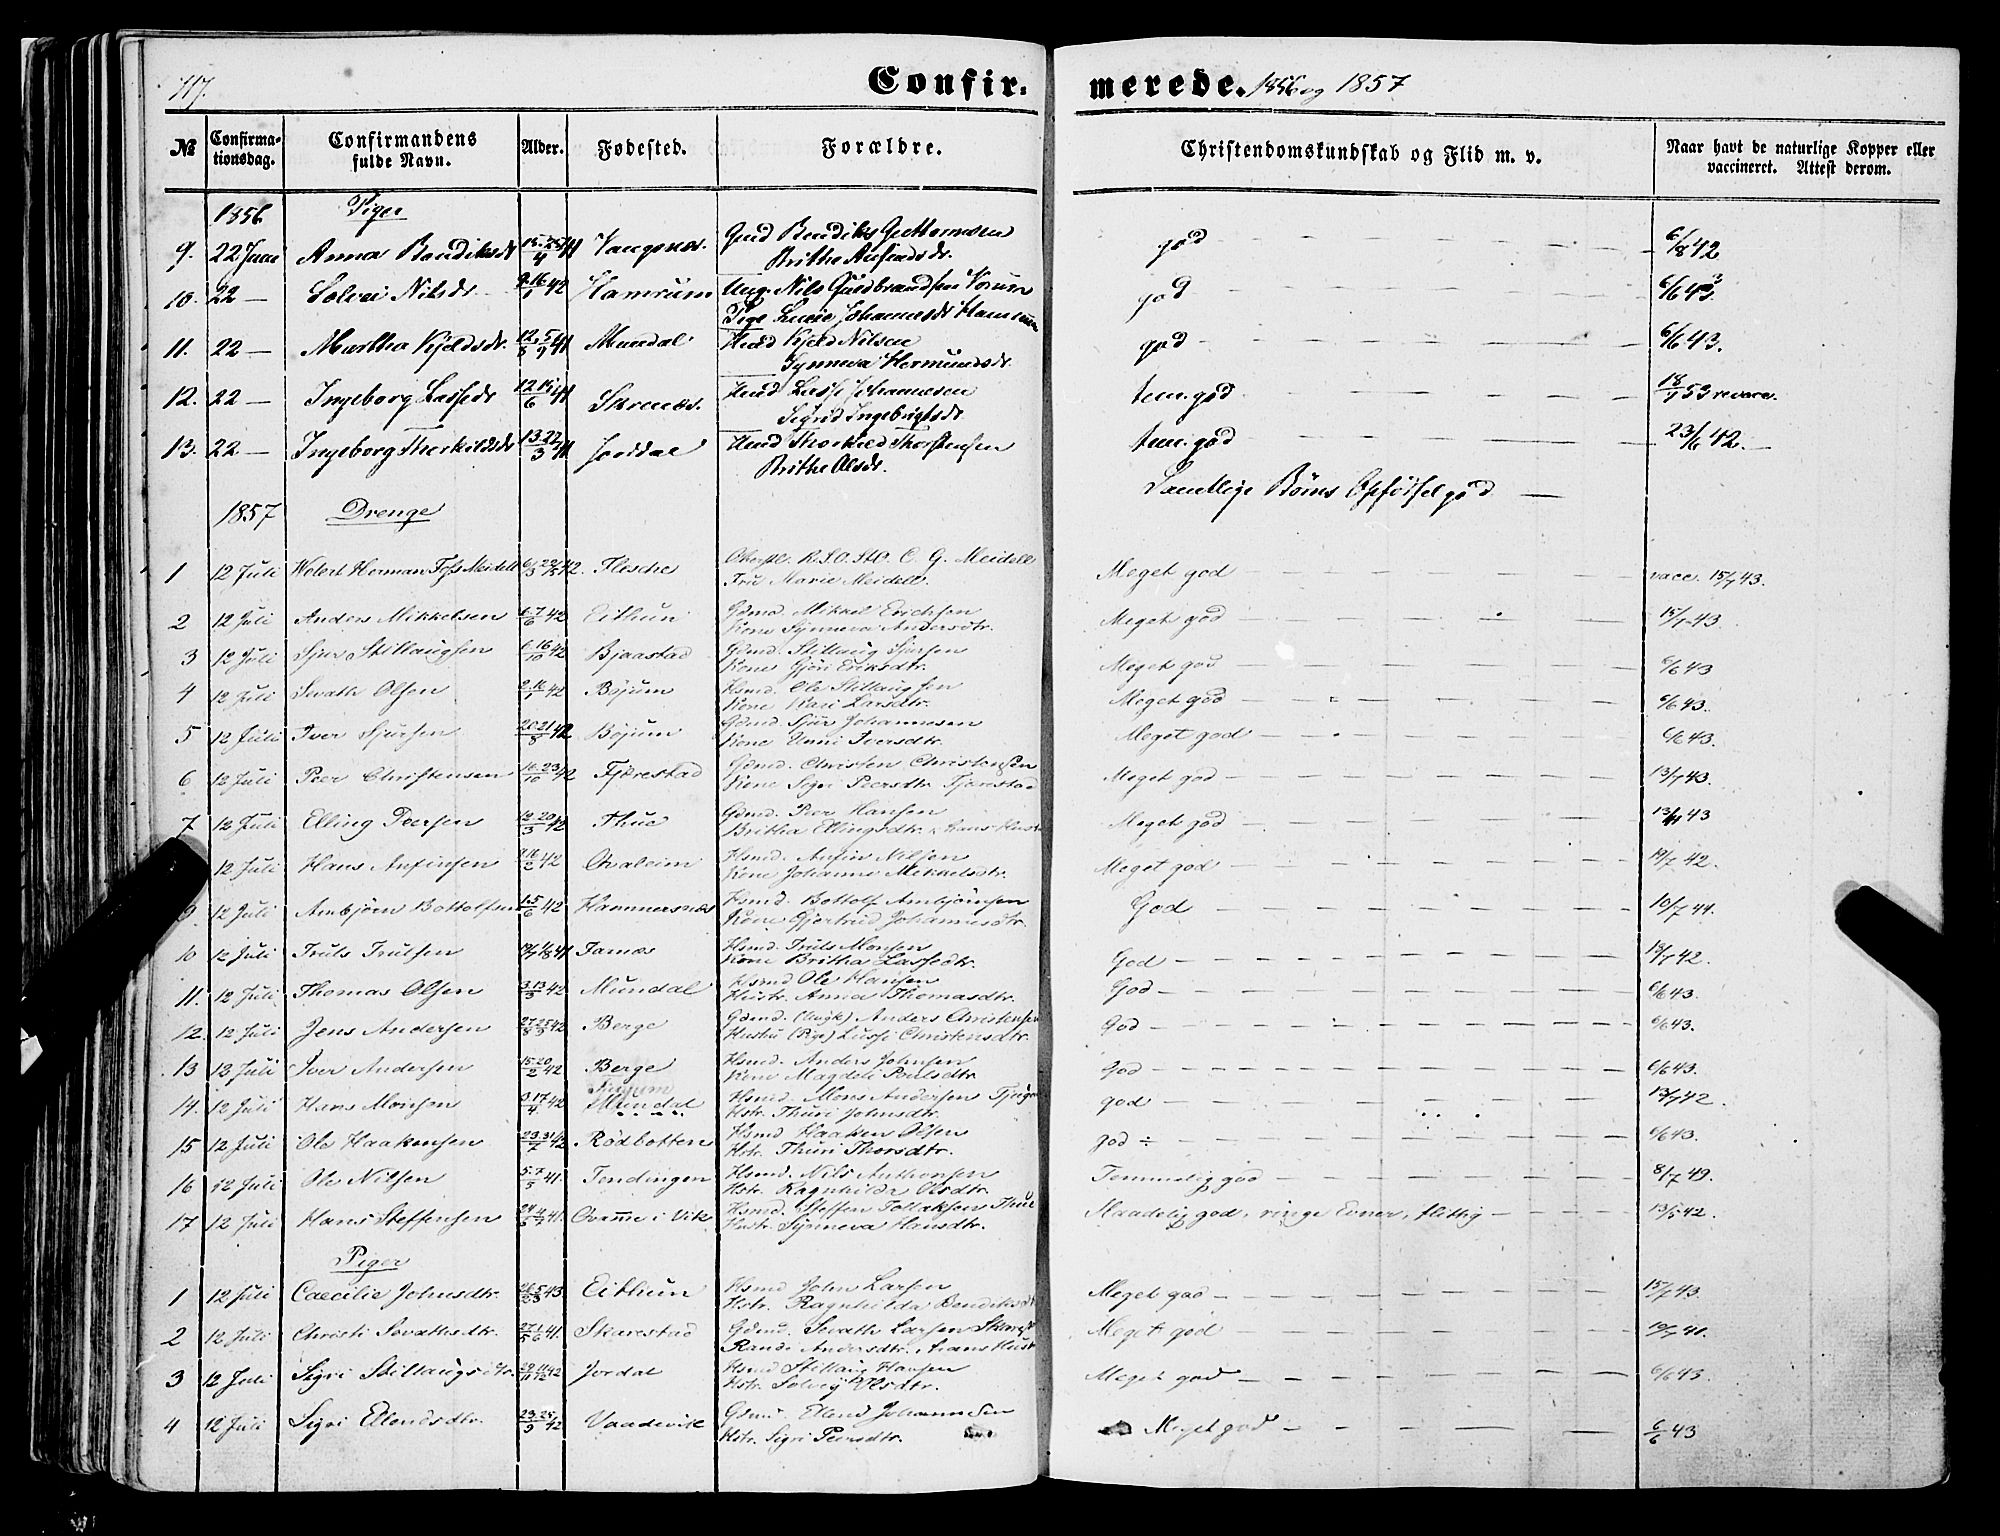 117.
Confir: merede. 1856 og 1857
№ Confirma-tionsdag. Confirmandens fulde Navn. Alder. Fødested. Forældre. Christendomskundskab og Flid m. v. Naar havt de naturlige Kopper eller vaccineret. Attest derom.
1856 Piger
9. 22 Juni Anna Bendiksdr 41 Vangsnæs. Bendik Guttormsen god 6/8 42
Britha
10. 22 — Solvei Nilsdr. 42 Hamrum Ung. Nils Guldbrandsen god 6/6 43
Pige Johannesdr Hamrum
11. 22 — Martha Kjeldsdr. 41 Mundal Kjeld Nilsen god 6/6 43.
Synneva Hermundsdr.
12. 22 — Ingeborg Lassedr 12/6 41 Skrenæs. Lasse Johannesen tem. god 53 revacc.
Sigrid Ingebrigtsdr.
13. 22 — Ingeborg Therkildsdr 41 Jorddal Thorkild Thorstensen tem. god 23/6 42. —
Brithe Olsdr.
Samtlige Børns Opførsel god —
1857 Drenge
1 12 Juli Welert Herman Foss Meidell 42. Flesche C. G. Meidell Meget god vacc. 15/7 43.
Fru Marie Meidell.
2 12 Juli Anders Mikkelsen 42 Eithun Gdmd Mikkel Erichsen Meget god 43.
Kone Synneva Andersdtr.
3 12 Juli Sjur Stillaugsen 6.16/10 42 Bjaastad Gdmd. Stillaug Sjursen Meget god 6/6 43
Kone Gjøri Eriksdtr.
4 12 Juli Sevath Olsen 42 Bøjum Hsmd. Ole Stillaugsen Meget god 6/6 43.
Kone Kari Larsdtr.
5 12 Juli Iver Sjursen 20.21/8 42 Bøjum Gdmd. Sjur Johannesen Meget god 6/6 43.
Kone Unni Iversdtr.
6 12 Juli Peer Christensen 42 Fjærestad Gdmd. Christen Christensen Meget god 13/7 43.
Kone Sigri Peersdtr. Fjærestad
7 12 Juli Elling Peersen 42 Thue Gdmd. Peer Hansen Meget god 43
Britha Ellingsdtr. hans Hustr
12 Juli Hans Anfinsen 42 Hsmd. Anfin Nilsen Meget god 19/7 42.
Kone Johanne Mikkelsdtr.
9 12 Juli Ambjörn Bottolfsen 42 Hammersnæs Hsmd. Bottolf Ambjörnsen God 10/7 44.
Kone Gjertrud Johannesdtr.
10 12 Juli Truls Trulsen 41 Hsmd. Truls Monsen God 19/7 42.
Kone Britha Lassedtr.
11. 12 Juli Thomas Olsen 3.13/3 42 Mundal Hsmd Ole Hansen God 6/6 43.
Hustr. Anna Thomasdtr.
12. 12 Juli Jens Andersen 42 Berge Gdmd. (Ungk) Anders Christensen God 6/6 43.
Hustru (Pige) Lussi Christensdtr.
13 12 Juli Iver Andersen 15.20/2 42 Berge Hsmd. Anders Johnsen God 6/6 43.
Kone Magdeli Poulsdtr.
14. 12 Juli Hans Monsen 3.17/4 42 Mundal Hsmd. Mons Andersen god 13/7 42.
Hstr. Thuri Johnsdtr.
15 12 Juli Ole Haakensen 23.31/7 42 Rödbotten Hsmd Haaken Olsen god ÷ 6/6 43.
Hstr. Thuri Thorsdtr.
16 12 Juli Ole Nilsen 5.7/5 41. Tendingen Hsmd. Nils Anthonsen Temmelig god 8/7 49.
Hstr. Ragnhilda Olsdtr.
17 12 Juli Hans Steffensen 41. Qvamme i Vik Hsmd. Steffen Tollaksen Thue Maadelig god, ringe Evner, flittig — 13/5 42.
Hustr. Synneva Hansdtr.
Piger
1 12 Juli Caecilie Johnsdtr. 43 Eithun Hsmd John Larsen Meget god 15/7 43.
Hstr. Ragnhilda Bendiksdtr
2 12 Juli Christi Sevathsdtr. 41. Skarestad Gdmd. Sevath Larsen Meget god
Randi Andersdtr. hans Hustr
3 12 Juli Sigri Stillaugsdtr. 42 Jordal Hsmd Stillaug Hansen Meget god 6/6 43.
Hstr. Solvej Olsdtr.
4 12 Juli Sigri Ellendsdtr. 42 Vaadevik Gdmd Ellend Johannesen Meget god 6/6 43
Hstr. Sigri Peersdtr.